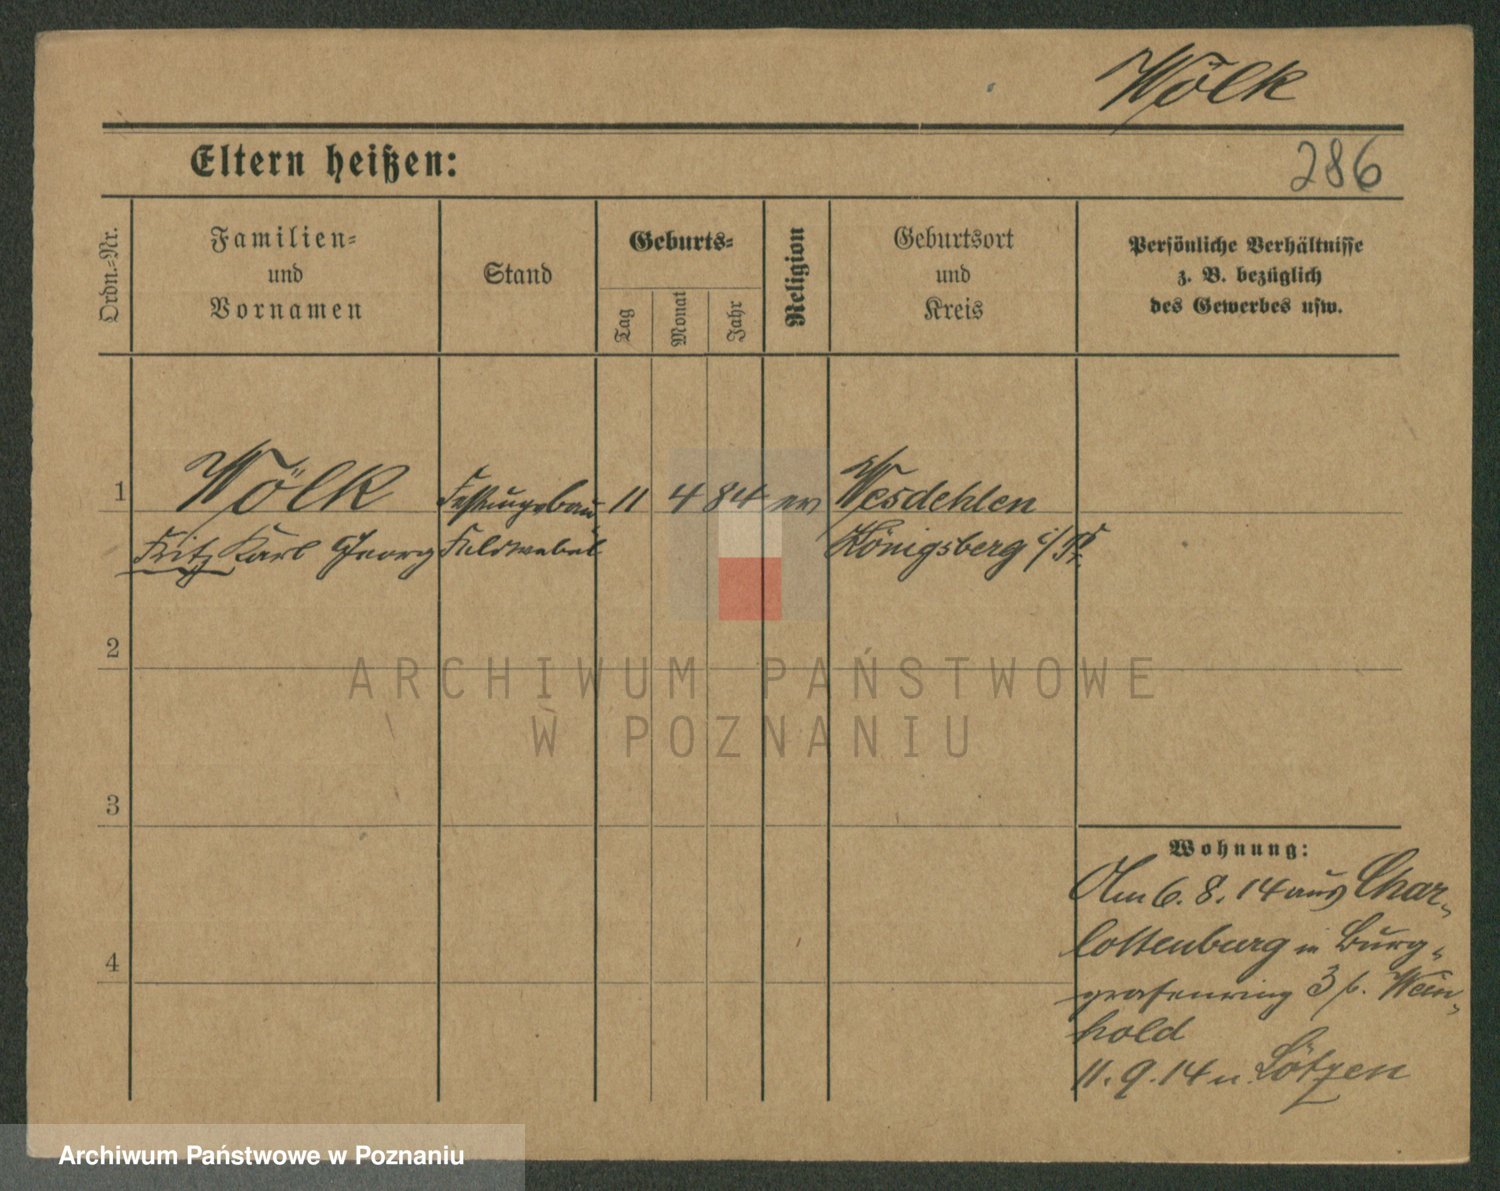 Wölk
Eltern heißen:
286
Ordn.-Nr.
Familien-
und
Vornamen
Stand
Geburts-
Tag
Monat
Jahr
Religion
Geburtsort
und
Kreis
Persönliche Verhältnisse
z. B. bezüglich
des Gewerbes usw.
1
Wölk
Festungsbau
11
4
84
ev
Wesdehlen
Fritz Karl Georg
Feldwebel
Königsberg i/Pr.
2
3
4
Wohnung:
Am 6. 8. 14 aus Char-
lottenburg in Burg-
grafenring 3 b. Wein-
hold
11. 9. 14 n. Lötzen
ARCHIWUM PAŃSTWOWE
W POZNANIU
Archiwum Państwowe w Poznaniu